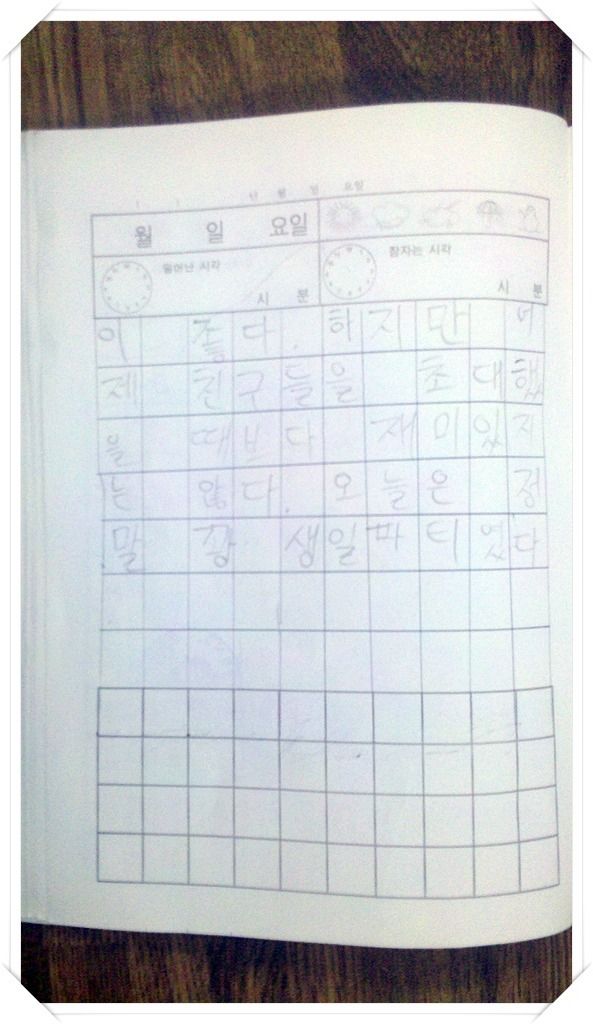 년 월 일 요일
월 일 요일
일어난 시각 잠자는 시각
시 분 시 분
이 좋다. 하지만 어
제 친구들을 초대했
을 때보다 재미있지
는 않다. 오늘은 정
말 꽝 생일파티였다